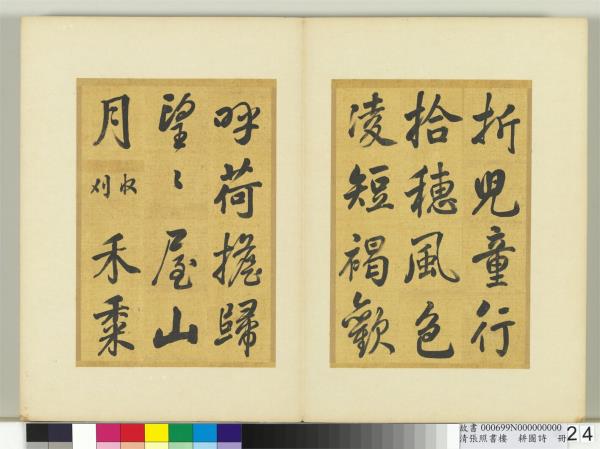 折兒童行
拾穗風色
凌短褐歡
呼荷擔歸
望〻屋山
月收刈禾黍
故書000699N000000000
清張照書樓　耕圖詩　冊
24